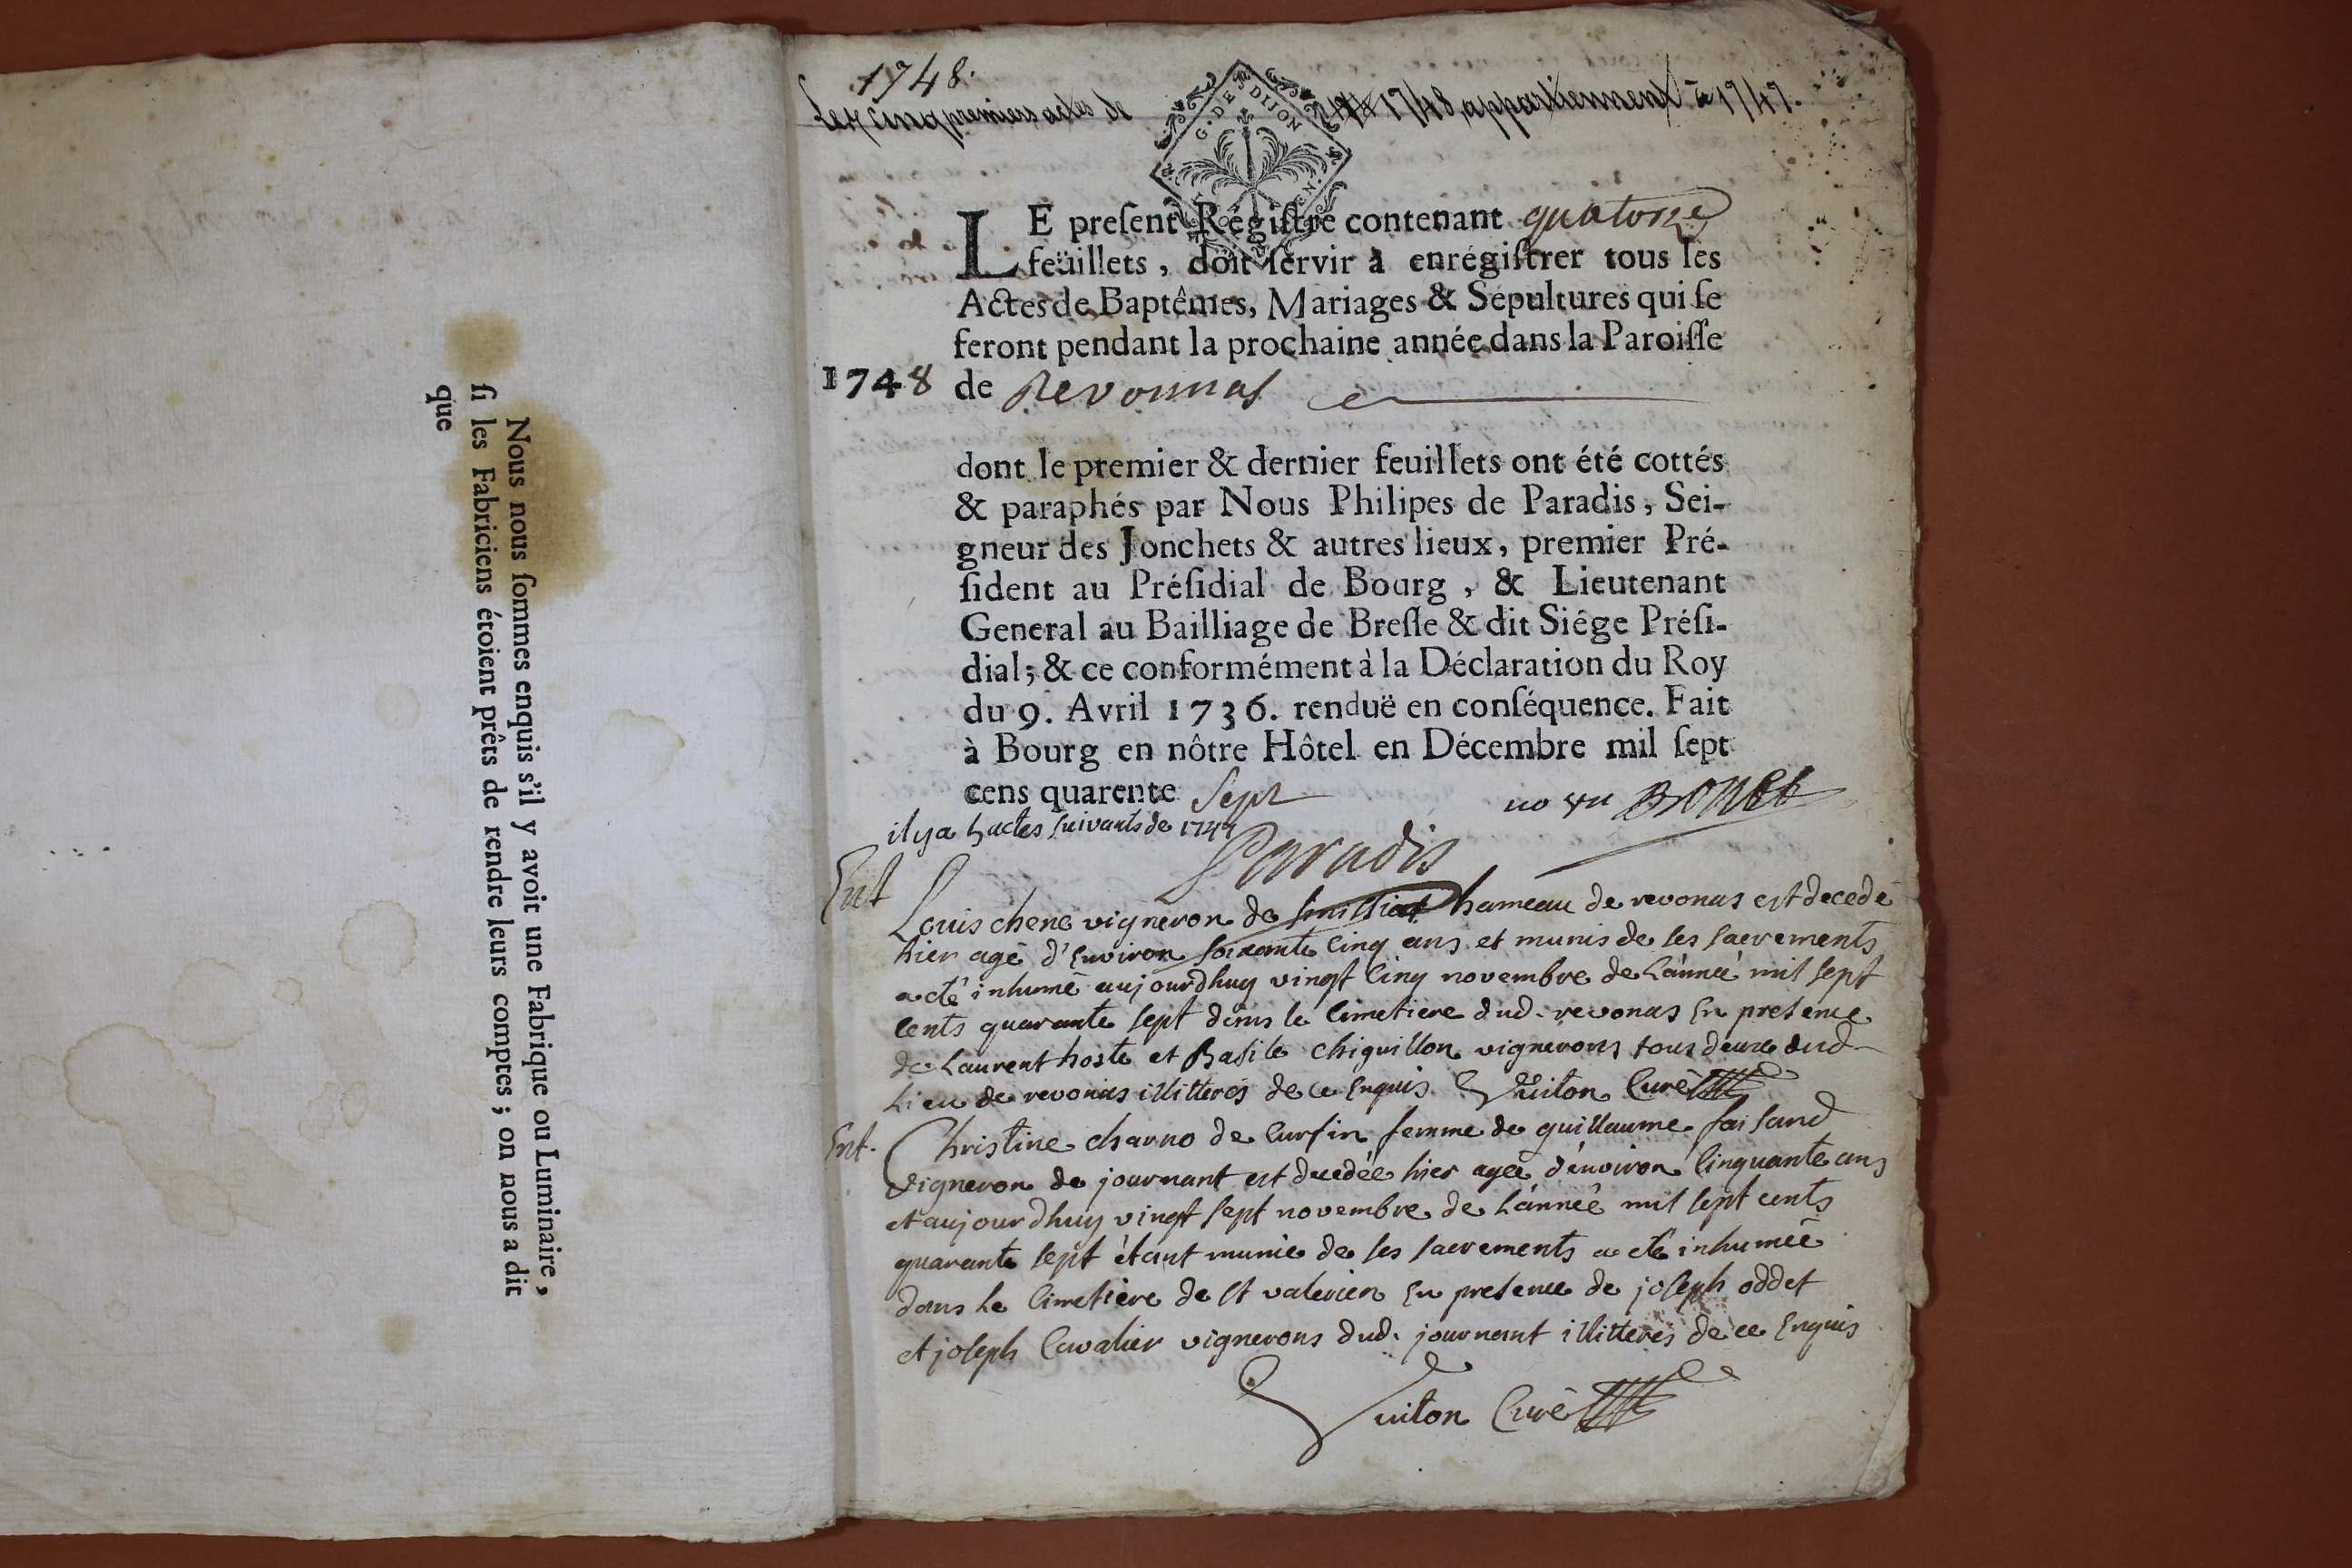 Nous nous ſommes enquis s'il y avoit une Fabrique ou Luminaire,
ſi les Fabriciens étoient prêts de rendre leurs comptes; on nous a dit
que
1748.
Les cinq premiers actes de 1748, appartiennent à 1747.
G. DE DIJON
LE preſent Régiſtre contenant quatorze
feüillets, doit ſervir à enrégiſtrer tous les
Actes de Baptêmes, Mariages & Sépultures qui ſe
feront pendant la prochaine année dans la Paroiſſe
1748 de Revonnas
dont le premier & dernier feuillets ont été cottés
& paraphés par Nous Philipes de Paradis, Sei-
gneur des Jonchets & autres lieux, premier Pré-
ſident au Préſidial de Bourg, & Lieutenant
General au Bailliage de Breſſe & dit Siége Préſi-
dial; & ce conformément à la Déclaration du Roy
du 9. Avril 1736. renduë en conſéquence. Fait
à Bourg en nôtre Hôtel en Décembre mil ſept
cens quarente Sept
il y a 5 actes suivants de 1747
Paradis
Ent
Louis chene vigneron de hameau de revonas est decedé
hier agé d'Environ soixante cinq ans et munis de ses sacrements
a eté inhumé aujourdhuy vingt cinq novembre de L'année mil sept
cents quarante sept dans le cimetiere dud. revonas En presence
de Laurent hoste et Basile chiquillon vignerons tous deux dud
Lieu de revonas illitterés de ce Enquis Guiton Curé
Ent. Christine charno de Curfin femme de guillaume faisand
vigneron de journant est decedée hier agée d'environ cinquante ans
et aujourdhuy vingt sept novembre de L'année mil sept cents
quarante sept étant munie de ses sacrements a eté inhumée
dans Le cimetière de St valerien En presence de joseph oddet
et joseph Cavalier vignerons dud. journant illitterés de ce Enquis
Guiton Curé